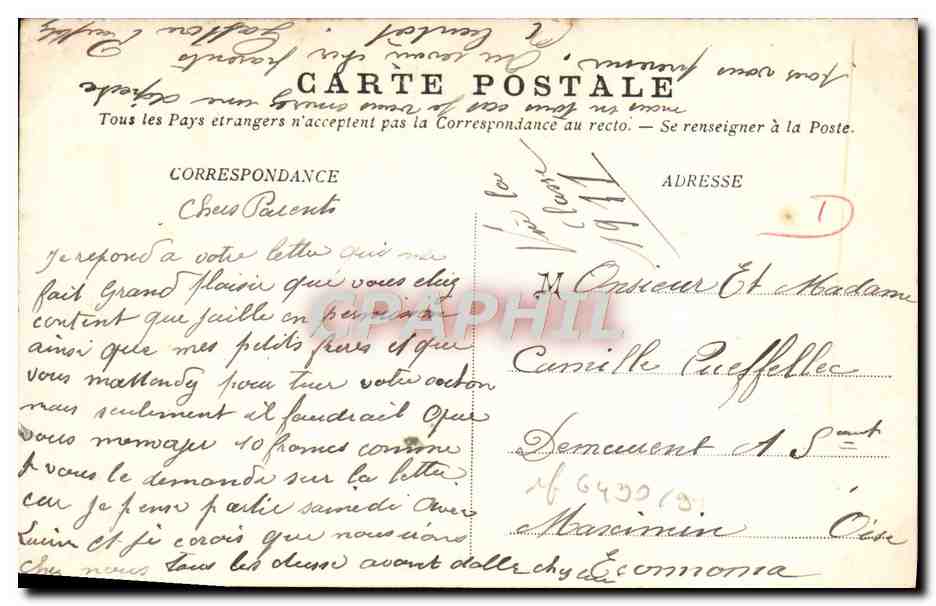 CARTE POSTALE
Tous les Pays etrangers n'acceptent pas la Correspondance au recto. — Se renseigner à la Poste.
CORRESPONDANCE
Chers Parents
Je repond a votre lettre qui me
fait Grand plaisir que vous etiez
content que jaille en permission
ainsi que mes petits freres et que
vous mattendez pour tuer votre cochon
mais seulement il faudrait que
vous menvoyer 10 francs comme
je vous le demande sur la lettre
car je pense partir samedi avec
Lucien et je crois que nous irons
chez nous tous les deusse avant daller chez
mais en tous cas je vous enverez une depeche
pour vous prevenir. Au revoir cher parents
Vive la
Classe
1911
ADRESSE
D
Monsieur Et Madame
Camille Pueffellec
Demeurent A Saint
rf 6490/9
Maximin Oise
CPAPHIL